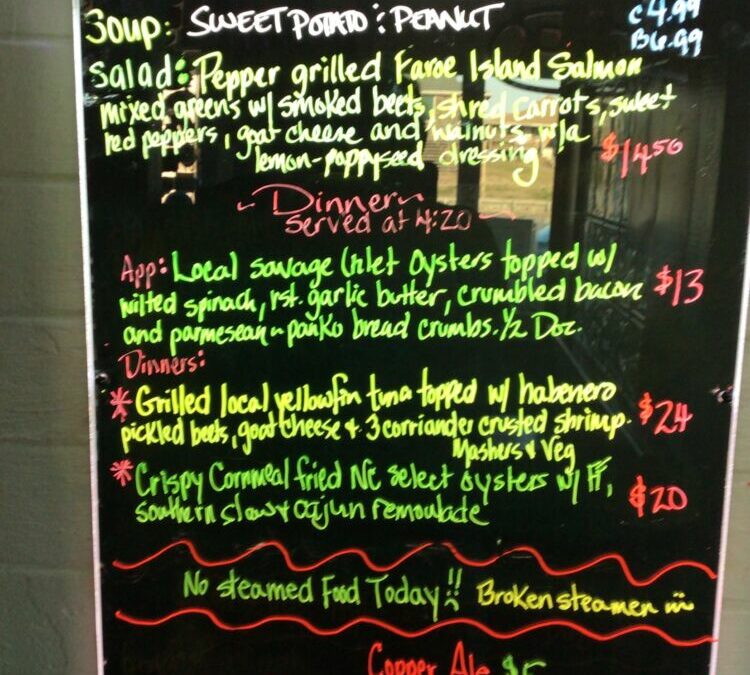 Soup: SWEET POTATO : PEANUT
C 4.99
B 6.99
Salad: Pepper grilled Faroe Island Salmon
mixed greens w/ smoked beets, shred carrots, sweet
red peppers, goat cheese and walnuts w/a
lemon-poppyseed dressing. $14.50
~ Dinner ~
served at 4:20
App: Local savage Inlet Oysters topped w/
wilted spinach, rst. garlic butter, crumbled bacon $13
and parmesean - panko bread crumbs. 1/2 Doz.
Dinners:
* Grilled local yellowfin tuna topped w/ habenero
pickled beets, goat cheese & 3 corriander crusted shrimp. $24
Mashers & Veg
* Crispy Cornmeal fried NC select oysters w/ FF,
southern slaw & cajun remoulade $20
No steamed Food Today!! Broken steamer
Copper Ale $5